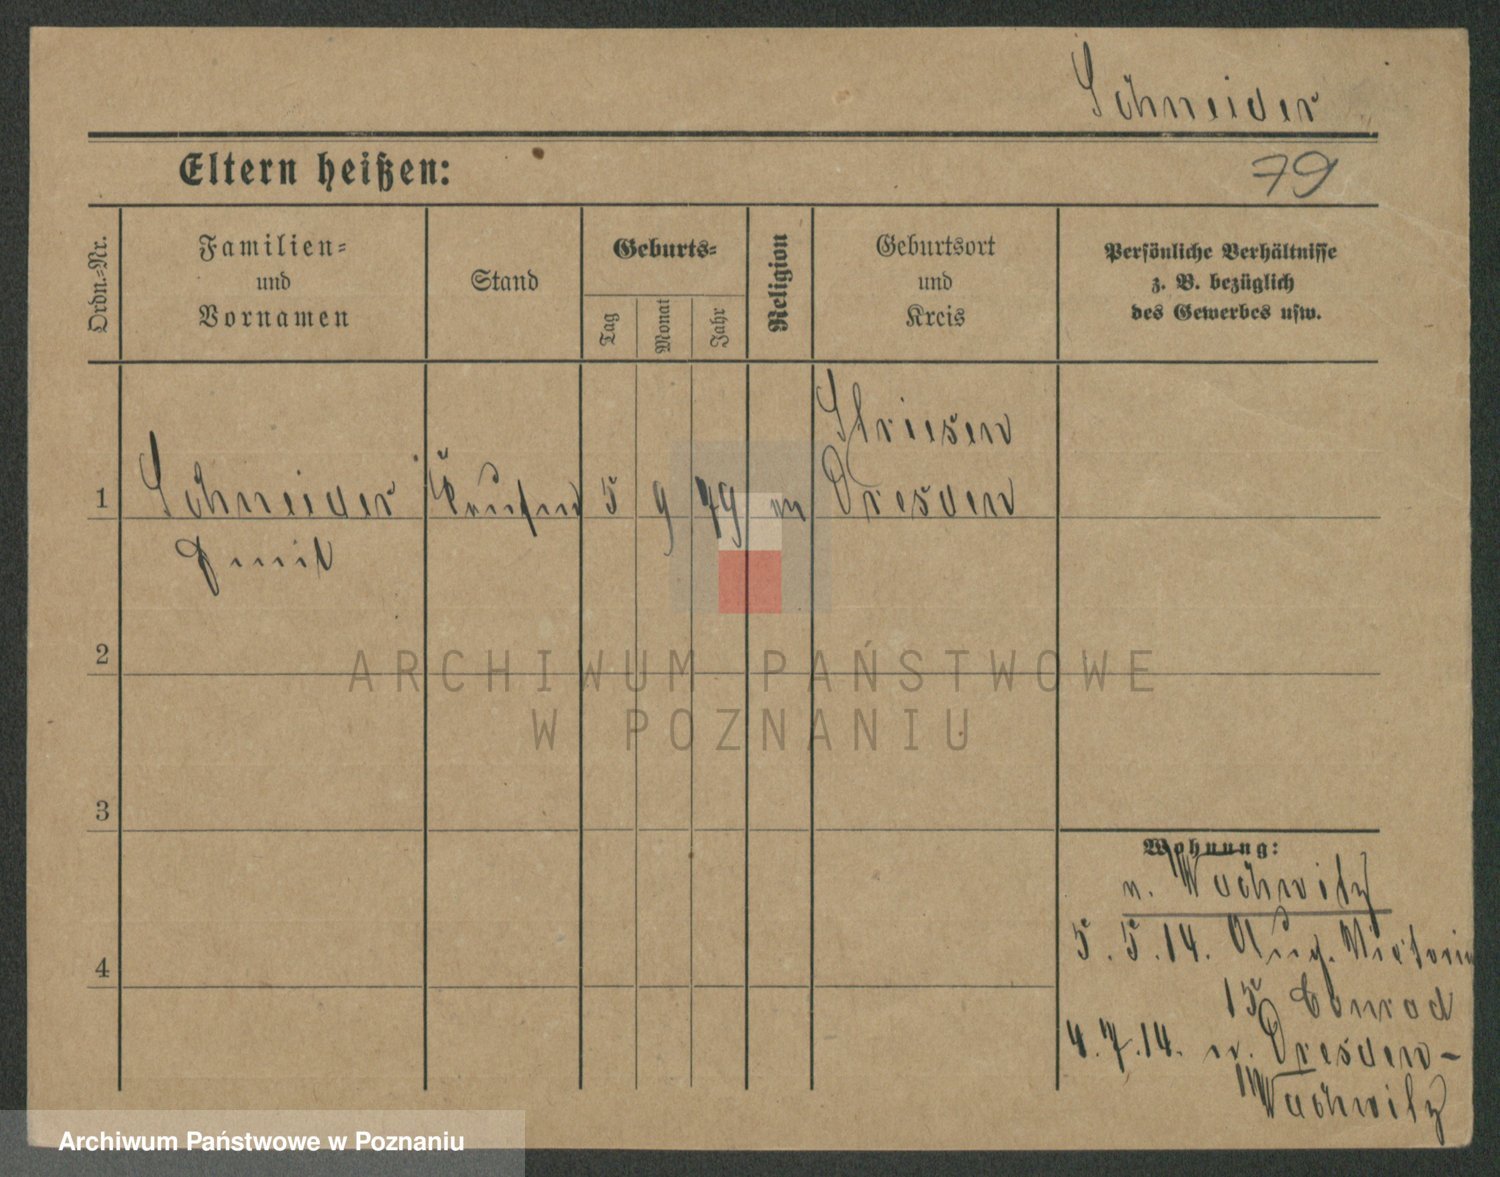 Schneider
Eltern heißen:
79
Ordn.-Nr.
Familien-
und
Vornamen
Stand
Geburts-
Tag
Monat
Jahr
Religion
Geburtsort
und
Kreis
Persönliche Verhältnisse
z. B. bezüglich
des Gewerbes usw.
1
Schneider
5
9
79
Striesen
Dresden
2
3
4
Wohnung:
n. Wachwitz
5. 5. 14. Aug. Victoria
15 Conrad
4. 7. 14. n. Dresden-
Wachwitz
ARCHIWUM PAŃSTWOWE
W POZNANIU
Archiwum Państwowe w Poznaniu